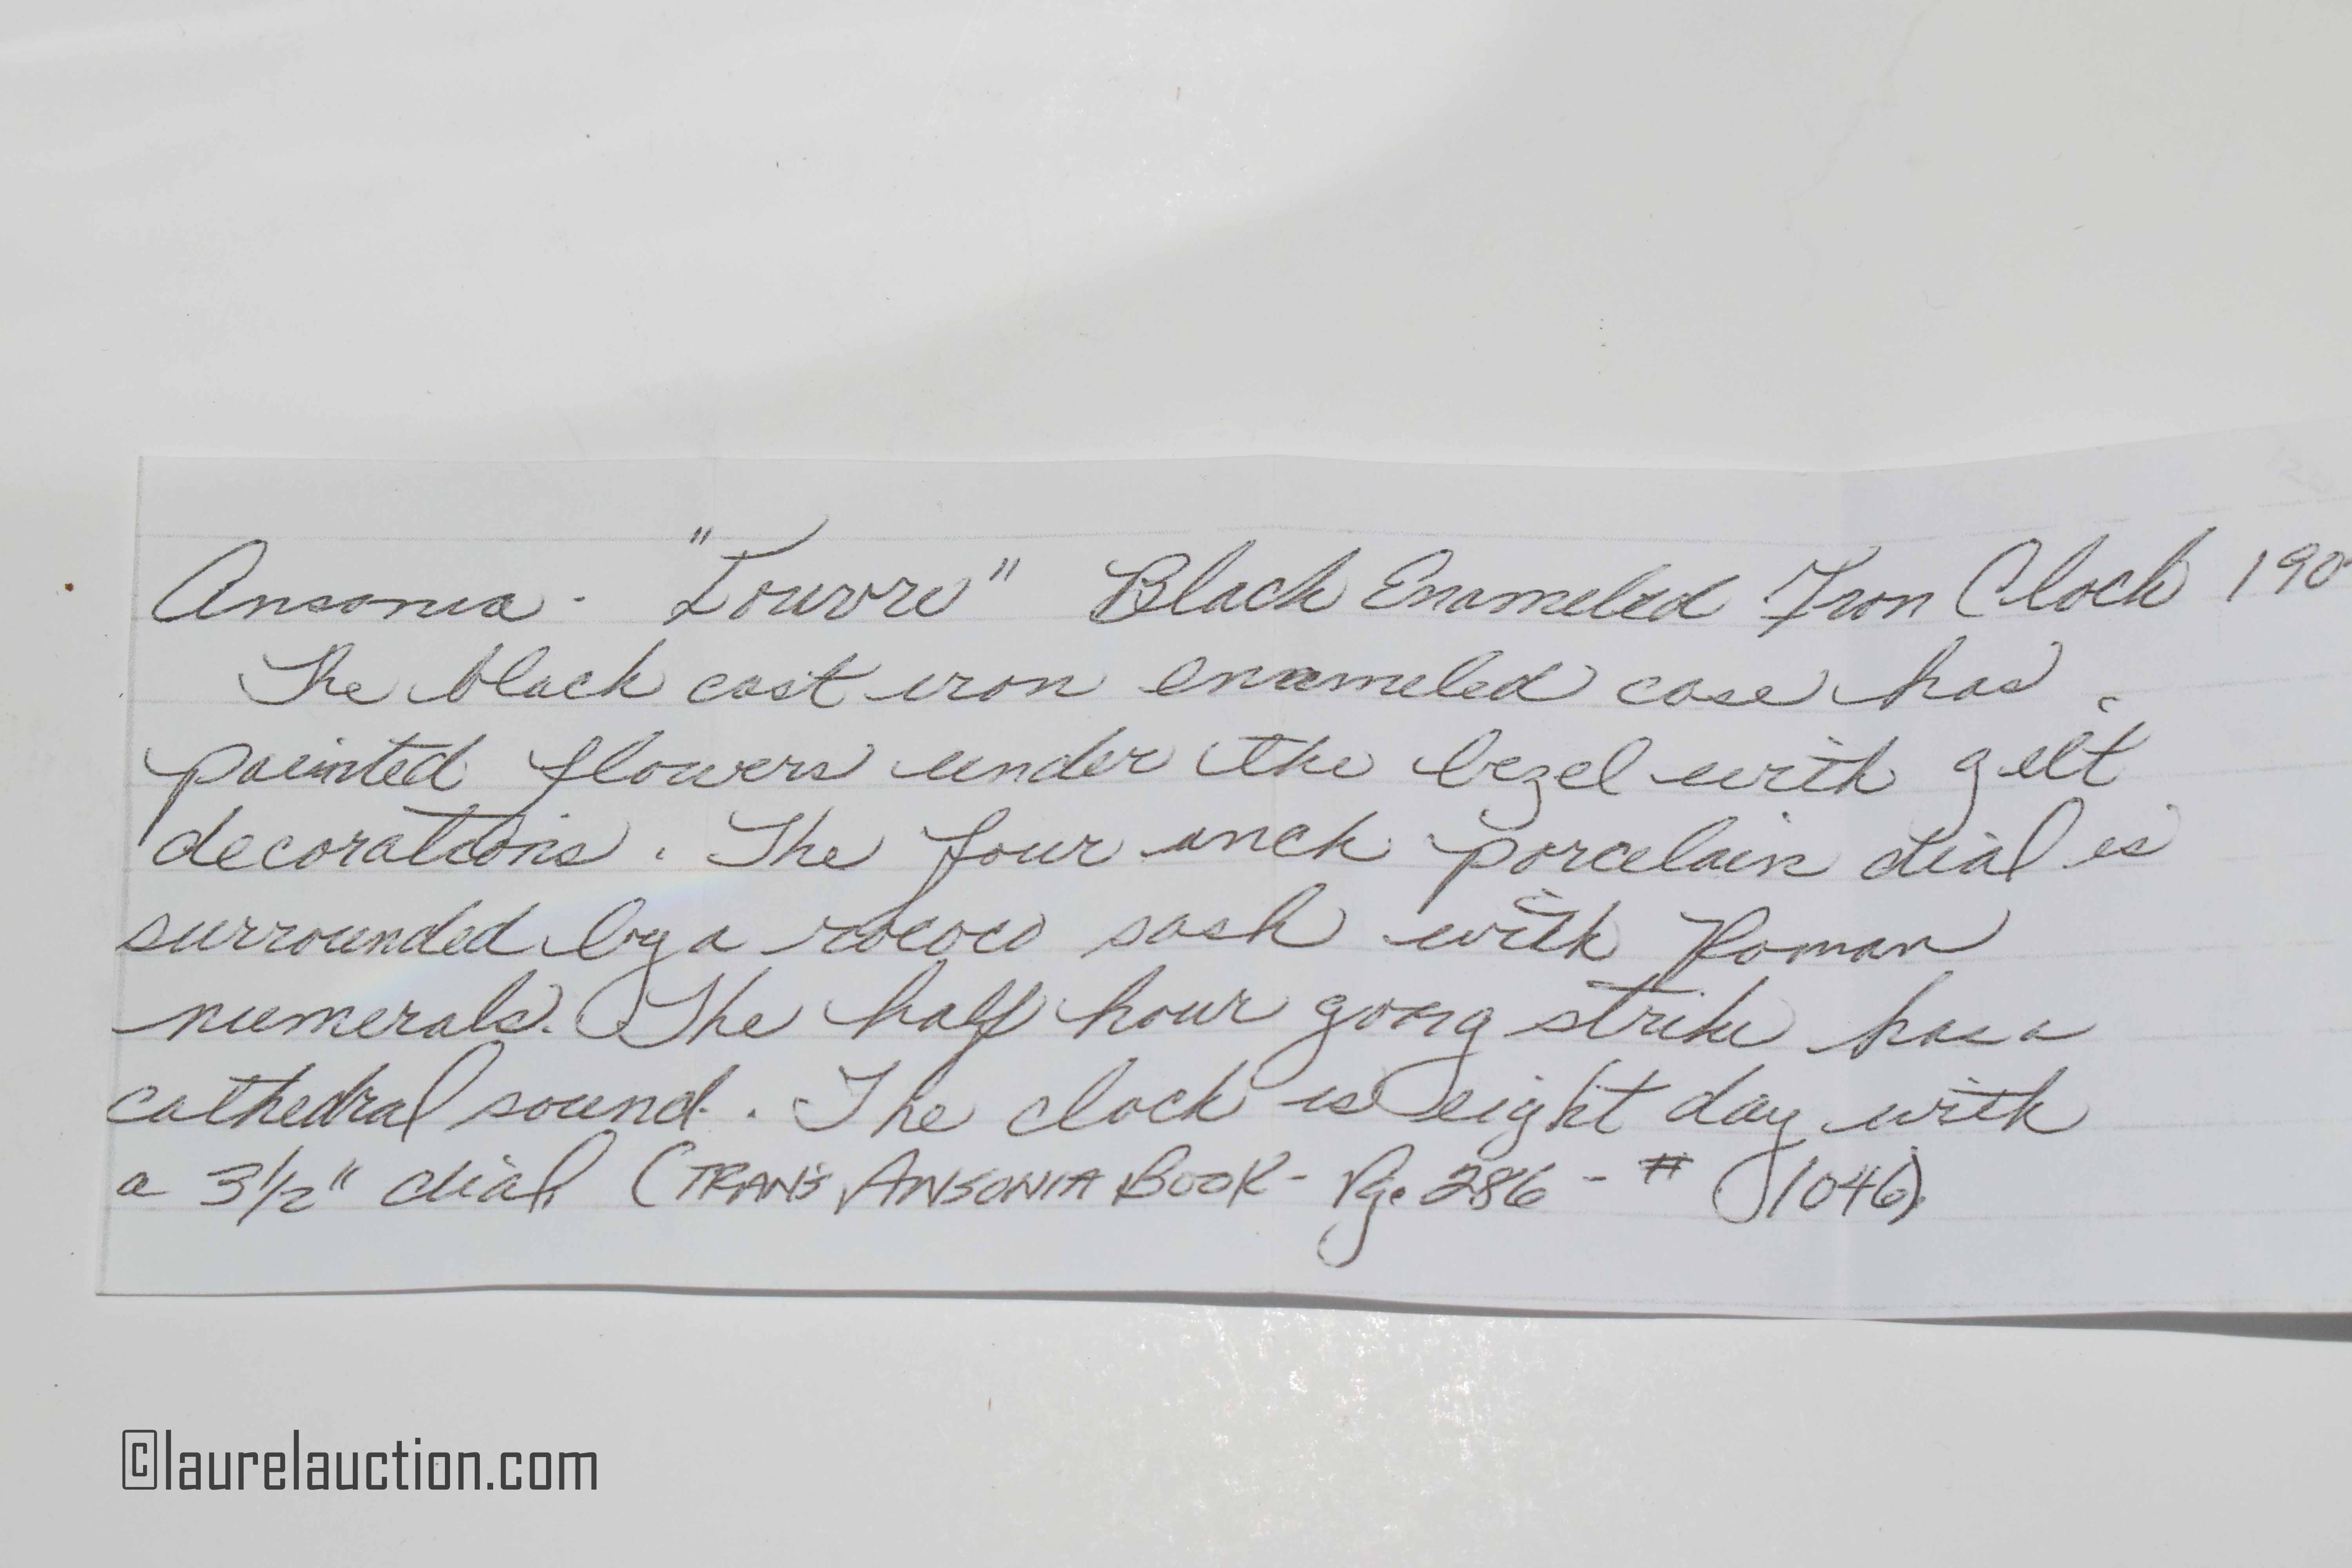 Ansonia - "Louvre" Black Enameled Iron Clock 190
The black cast iron enameled case has
painted flowers under the bezel with gilt
decorations. The four inch porcelain dial is
surrounded by a rococo sash with Roman
numerals. The half hour gong strike has a
cathedral sound. The clock is eight day with
a 3½" dial (TRAN'S ANSONIA BOOK - Pg. 286 - # 1046)
©laurelauction.com